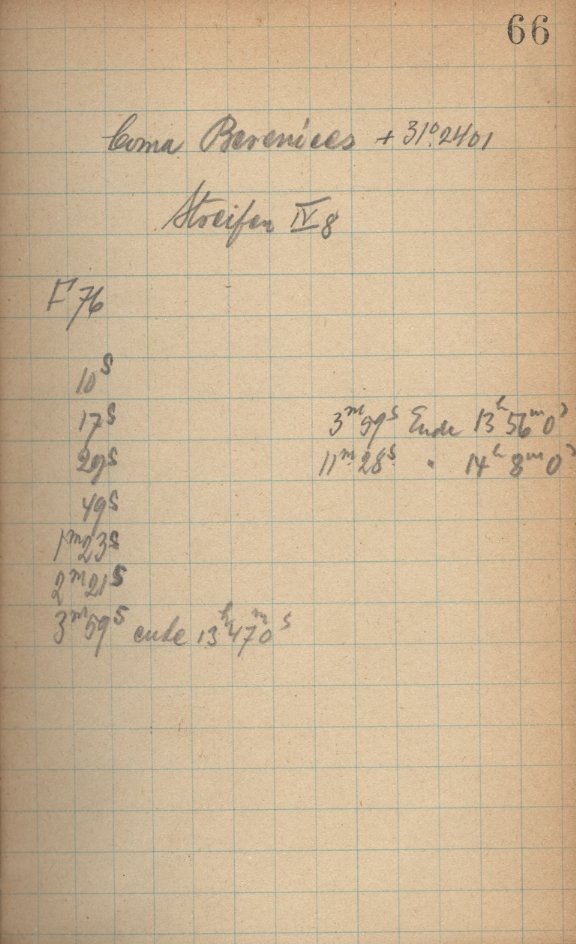 66
Coma Berenices + 31°.2401
Streifen IV 8
F 76
10ˢ
17ˢ
29ˢ
49ˢ
1ᵐ23ˢ
2ᵐ21ˢ
3ᵐ59ˢ ende 13ʰ47ᵐ0ˢ
3ᵐ59ˢ Ende 13ʰ56ᵐ0ˢ
11ᵐ28ˢ " 14ʰ8ᵐ0ˢ